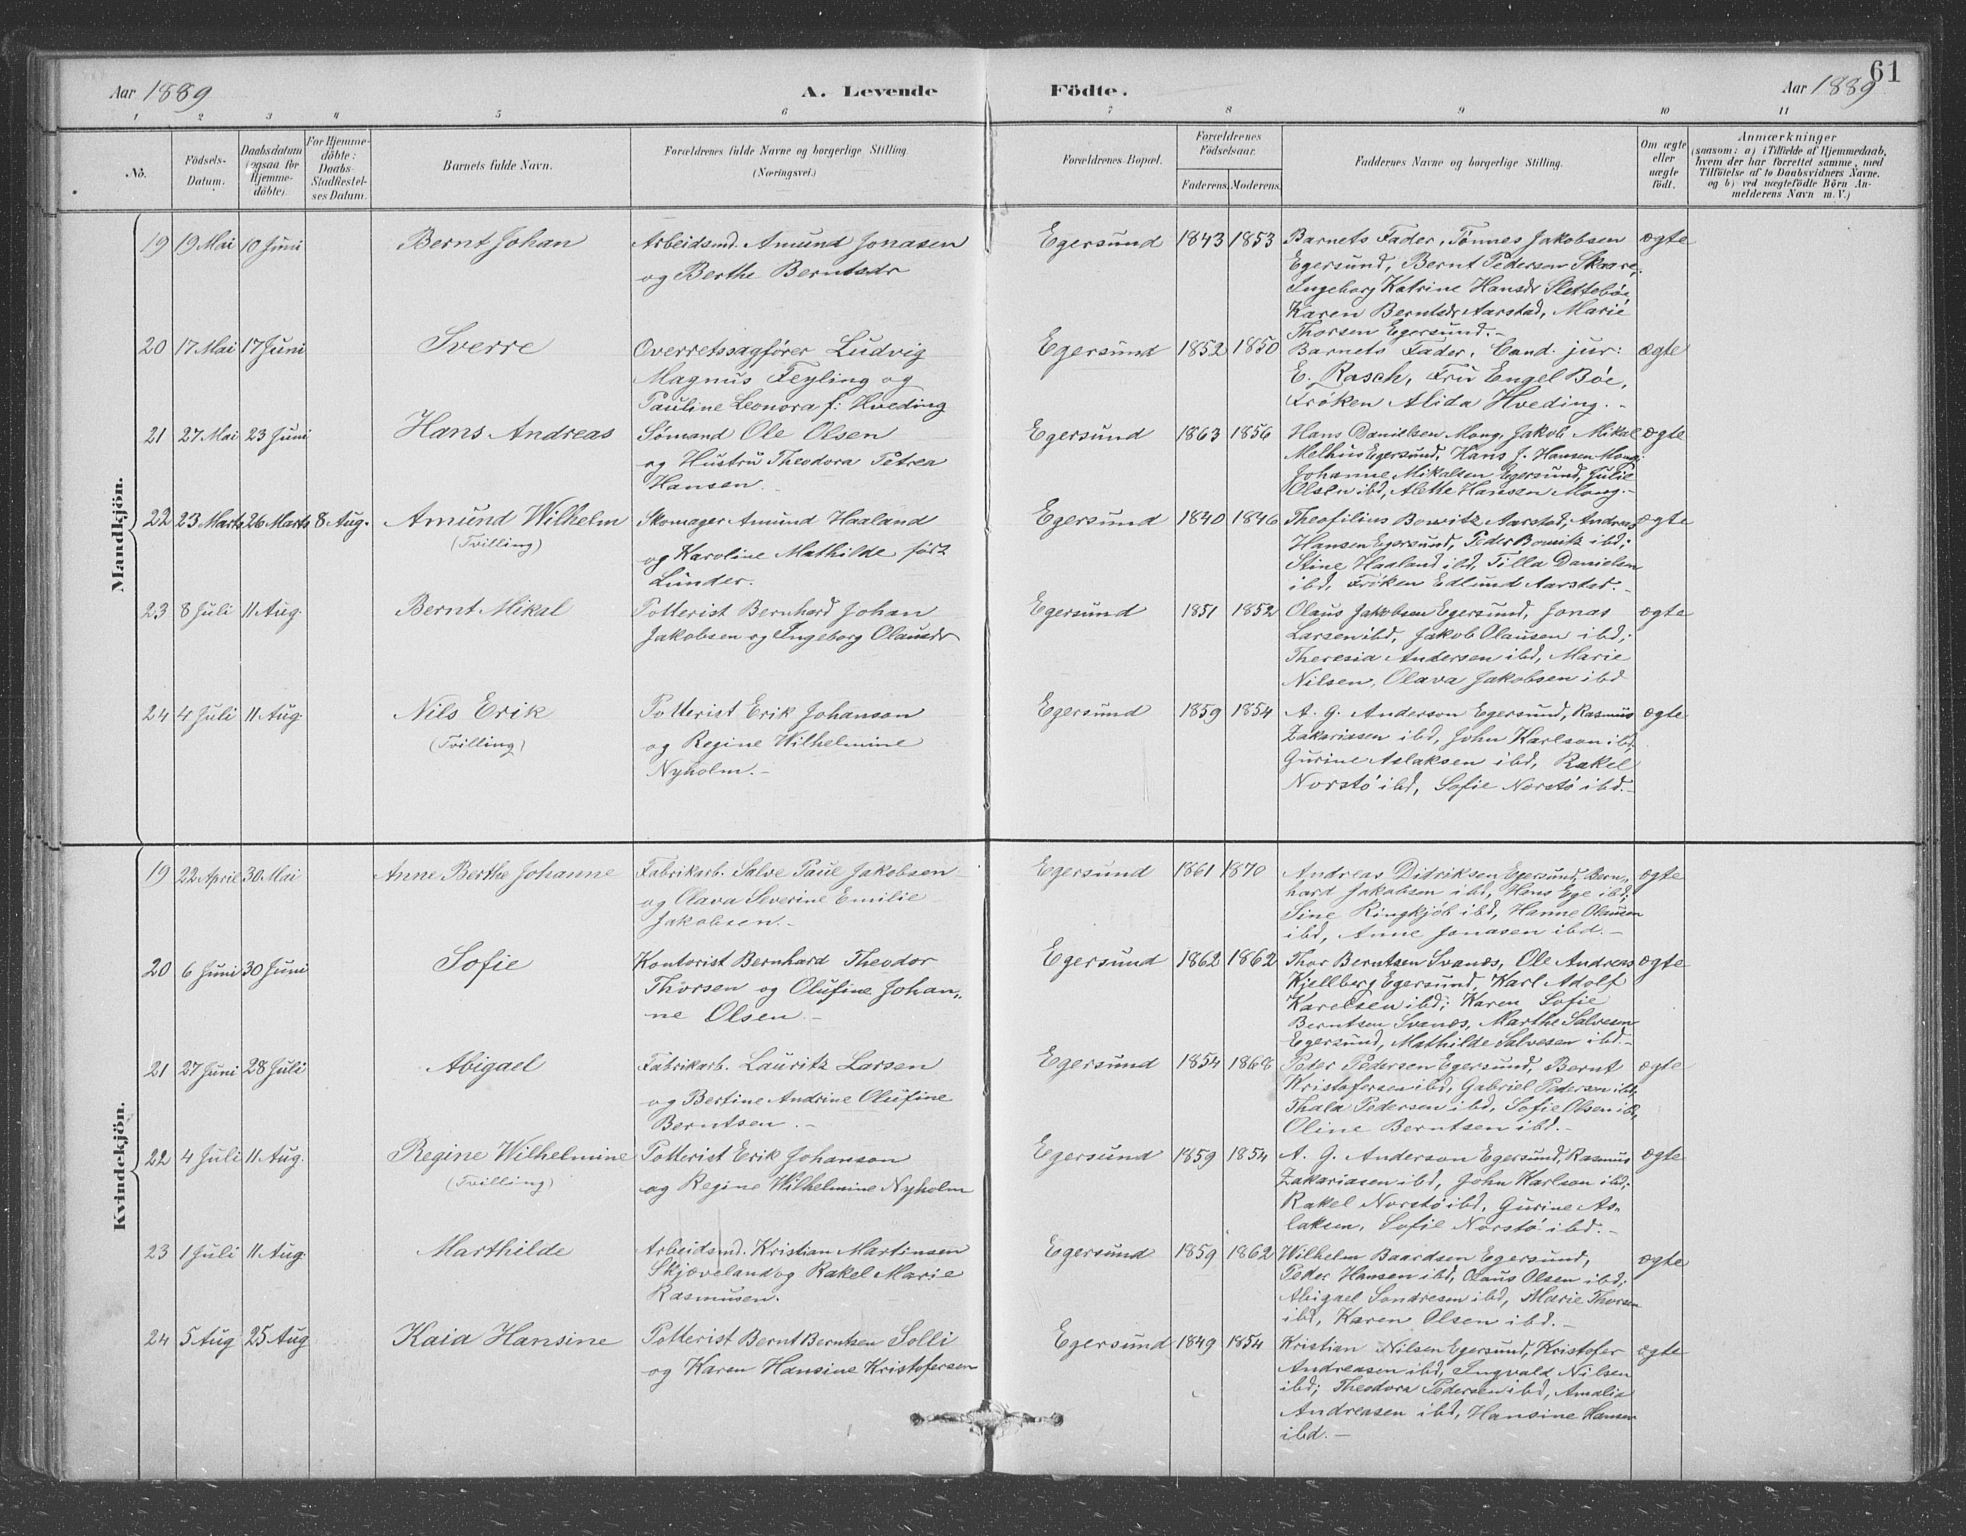 Aar 1889 A. Levende Födte. Aar 1889 61
1 2 3 4 5 6 7 8 9 10 11
No. Födsels-Datum. Daabsdatum (ogsaa for Hjemme-döbte). For Hjemme-döbte: Daabs-Stadfæstel-ses Datum. Barnets fulde Navn. Forældrenes fulde Navne og borgerlige Stilling (Næringsvei.) Forældrenes Bopæl. Forældrenes Födselsaar. Faderens. Moderens. Faddernes Navne og borgerlige Stilling. Om ægte eller uægte födt. Anmærkninger (saasom: a) i Tilfælde af Hjemmedaab, hvem der har forrettet samme, med Tilföielse af to Daabsvidners Navne. og b) ved uægtefödte Börn An-melderens Navn m. V.)
Mandkjön.
19 19 Mai 10 Juni Bernt Johan Arbeidsmd. Amund Jonasen Egersund 1843 1853 Barnets Fader, Tönnes Jakobsen ægte
og Berthe Berntsdr Egersund, Bernt Pedersen Skaare,
Ingeborg Katrine Hansdr Sletteböe
Karen Berntsdr Aarstad, Marie
Thorsen Egersund.-
20 17 Mai 17 Juni Sverre Overretssagförer Ludvig Egersund 1852 1850 Barnets Fader, Cand. jur: ægte
Magnus Feyling og E. Rasch, Fru Engel Böe,
Pauline Leonora f: Hveding Fröken Alida Hveding.-
21 27 Mai 23 Juni Hans Andreas Sömand Ole Olsen Egersund 1863 1856 Hans Danielsen Mong, Jakob Mikal ægte
og Hustru Theodora Petrea Melhus Egersund, Hans J. Hansen Mong,
Hansen.- Johanne Mikalsen Egersund, Julie
Olsen ibd, Alethe Hansen Mong.-
22 23 Marts 26 Marts 8 Aug. Amund Wilhelm Skomager Amund Haaland Egersund 1840 1846 Theofilius Bowitz Aarstad, Andreas ægte
(Tvilling) og Karoline Mathilde født Hansen Egersund, Peder Bowitz ibd;
Lunder. Stine Haaland ibd, Tilla Danielsen
ibd, Fröken Edlund Aarstad.-
23 8 Juli 11 Aug. Bernt Mikal Potterist Bernhard Johan Egersund 1851 1852 Olaus Jakobsen Egersund, Jonas ægte
Jakobsen og Ingeborg Olausdr Larsen ibd, Jakob Olausen ibd;
Theresia Andersen ibd, Marie
Nilsen, Olava Jakobsen ibd
24 4 Juli 11 Aug Nils Erik Potterist Erik Johanson Egersund 1859 1854 A. G. Anderson Egersund, Rasmus ægte
(Tvilling) og Regine Wilhelmine Zakariasen ibd, John Karlson ibd,
Nyholm.- Gurine Aslaksen ibd, Rakel
Norstö ibd, Sofie Norstö ibd.-
Kvindekjön.
19 22 April 30 Mai Anne Berthe Johanne Fabrikarb. Salve Paul Jakobsen Egersund 1861 1870 Andreas Didriksen Egersund, Bern- ægte
og Olava Severine Emilie hard Jakobsen ibd, Hans Ege ibd;
Jakobsen.- Sine Ringkjöb ibd, Hanne Olausen
ibd, Anne Jonasen ibd.-
20 6 Juni 30 Juni Sofie Kontorist Bernhard Theodor Egersund 1862 1862 Thor Berntsen Svanæs, Ole Andreas ægte
Thorsen og Olufine Johan- Kjellberg Egersund, Karl Adolf
ne Olsen.- Karelsen ibd; Karen Sofie
Berntsen Svanæs, Marthe Salvesen
Egersund, Mathilde Salvesen ibd.-
21 27 Juni 28 Juli Abigael Fabrikarb. Lauritz Larsen Egersund 1854 1868 Peder Pedersen Egersund, Bernt ægte
og Bertine Andrine Olufine Kristofersen ibd, Gabriel Pedersen ibd;
Berntsen.- Thala Pedersen ibd, Sofie Olsen ib,
Oline Berntsen ibd.-
22 4 Juli 11 Aug. Regine Wilhelmine Potterist Erik Johanson Egersund 1859 1854 A. G. Anderson Egersund, Rasmus ægte
(Tvilling) og Regine Wilhelmine Nyholm Zakariasen ibd, John Karlson ibd;
Rakel Norstö ibd, Gurine As-
laksen, Sofie Norstö ibd.-
23 1 Juli 11 Aug. Marthilde Arbeidsmd. Kristian Martinsen Egersund 1859 1862 Wilhelm Baardsen Egersund, ægte
Skjæveland og Rakel Marie Peder Hansen ibd, Olaus Olsen ibd;
Rasmusen. Abigael Sondresen ibd, Marie Thorsen
ibd, Karen Olsen ibd.-
24 5 Aug 25 Aug Kaia Hansine Potterist Bernt Berntsen Solli Egersund 1849 1854 Kristian Nilsen Egersund, Kristofer ægte
og Karen Hansine Kristofersen Andreasen ibd, Ingvald Nilsen
ibd; Theodora Pedersen ibd, Amalia
Andreasen ibd, Hansine Hansen
ibd.-